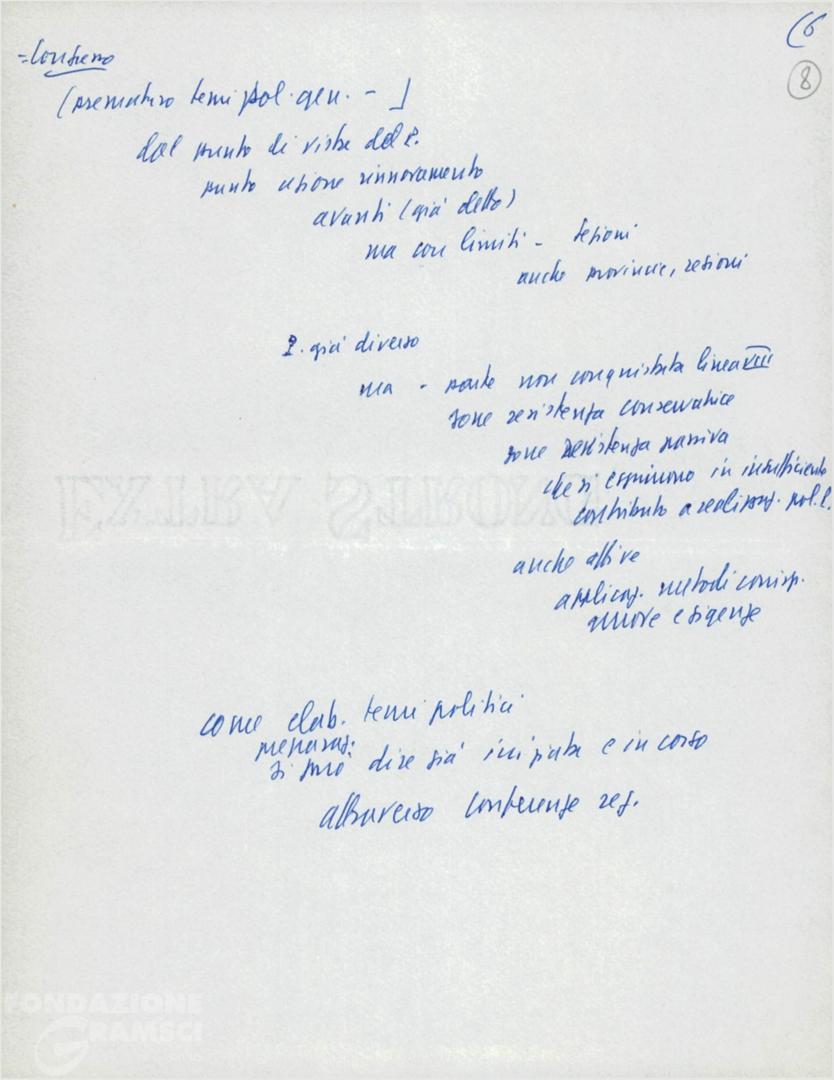 (6
8
= Congresso
(prematuro temi pol. gen. - )
dal punto di vista del P.
punto azione rinnovamento
avanti (già detto)
ma con limiti - sezioni
anche provincie, regioni
P. già diverso
ma - parte non conquistata linea VIII
zone resistenza conservatrice
zone resistenza passiva
che si esprimono in insufficiente
contributo a realizzaz. pol. P.
anche attive
applicaz. metodi corrisp.
nuove esigenze
come elab. temi politici
preparaz.
si può dire già iniziata e in corso
attraverso conferenze reg.
EXTRA STRONG
FONDAZIONE
GRAMSCI